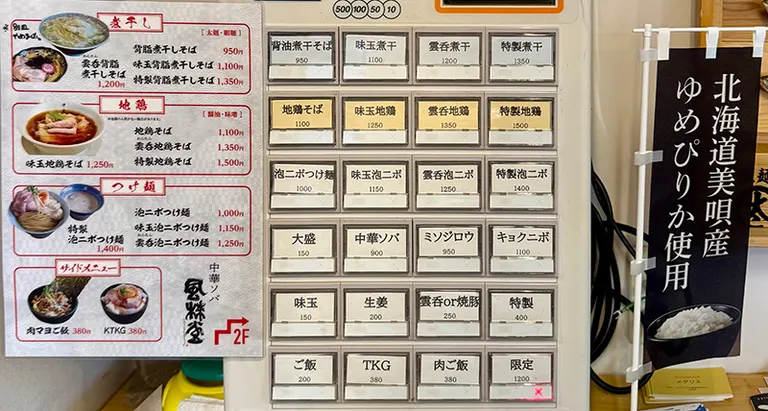 煮干し
[太麺・細麺]
背脂煮干しそば 950円
味玉煮干しそば 1,100円
特製背脂煮干しそば 1,350円
雲呑背脂
煮干しそば
1,200円
地鶏
[醤油・味噌]
地鶏そば 1,100円
雲呑地鶏そば 1,350円
特製地鶏そば 1,500円
味玉地鶏そば 1,250円
つけ麺
泡ニボつけ麺 1,000円
味玉泡ニボつけ麺 1,150円
雲呑泡ニボつけ麺 1,250円
特製
泡ニボつけ麺
1,400円
サイドメニュー
肉マヨご飯 380円
KTKG 380円
中華ソバ
風林堂
2F
500 100 50 10
背油煮干そば
950
味玉煮干
1100
雲呑煮干
1200
特製煮干
1350
地鶏そば
1100
味玉地鶏
1250
雲呑地鶏
1350
特製地鶏
1500
泡ニボつけ麵
1000
味玉泡ニボ
1150
雲呑泡ニボ
1250
特製泡ニボ
1400
大盛
150
中華ソバ
900
ミソジロウ
950
キョクニボ
1100
味玉
150
生姜
200
雲呑or焼豚
250
特製
400
ご飯
200
TKG
380
肉ご飯
380
限定
1200
北海道美唄産
ゆめぴりか使用